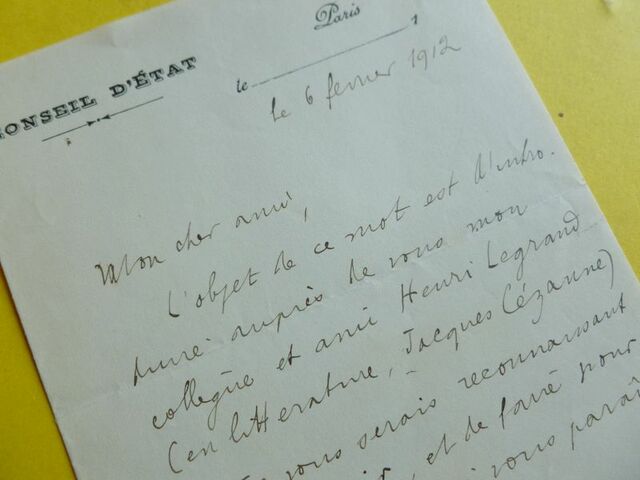 CONSEIL D'ÉTAT
Paris
le 1
Le 6 fevrier 1912
Mon cher ami,
L'objet de ce mot est d'intro-
duire auprès de vous mon
collègue et ami Henri Legrand
(en littérature, Jacques Cézanne)
vous serais reconnaissant
et de faire pour
vous paraî